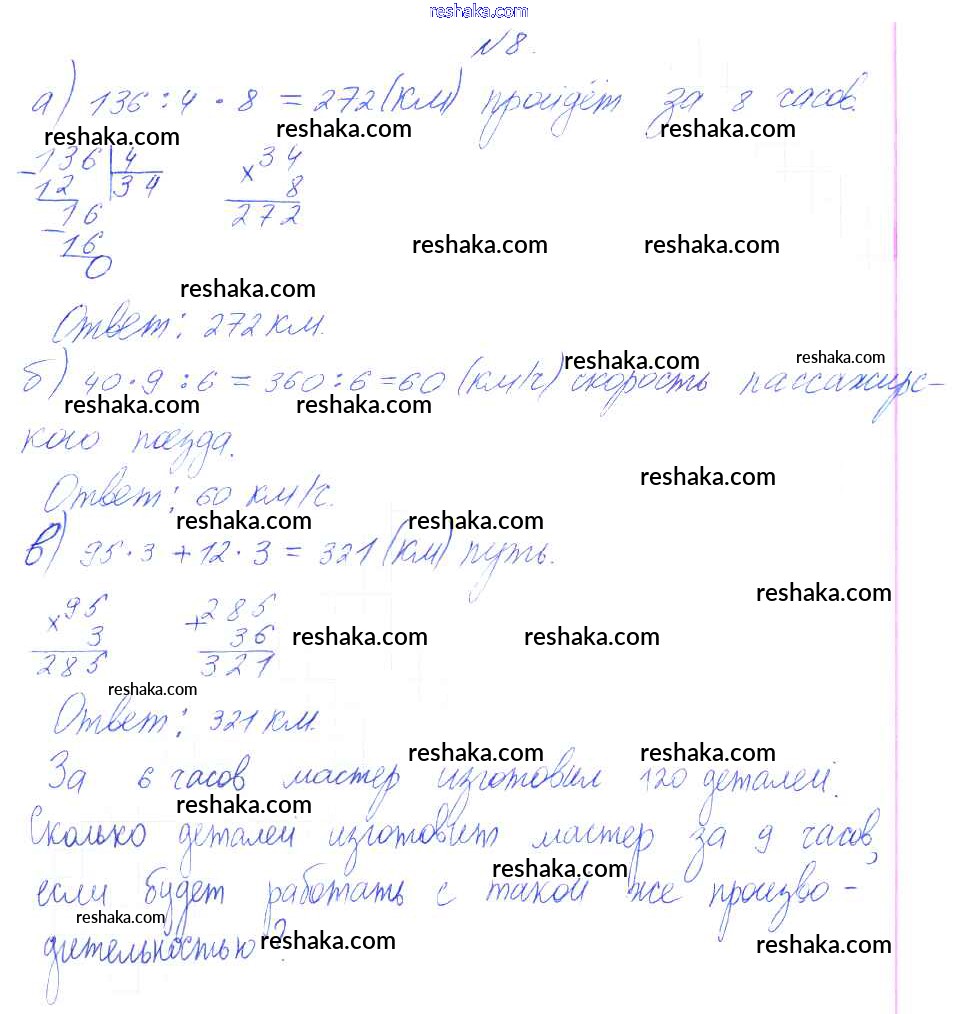 reshaka.com
№8.
а) 136 : 4 · 8 = 272 (км) пройдёт за 8 часов.
reshaka.com reshaka.com reshaka.com
- 136 | 4 × 34
12 34 8
- 16 272
16
0
reshaka.com reshaka.com
reshaka.com
Ответ: 272 км.
reshaka.com reshaka.com
б) 40 · 9 : 6 = 360 : 6 = 60 (км/ч) скорость пассажирс-
reshaka.com reshaka.com
кого поезда.
reshaka.com
Ответ: 60 км/ч.
reshaka.com reshaka.com
в) 95 · 3 + 12 · 3 = 321 (км) путь.
reshaka.com
× 95 + 285
3 36
285 321
reshaka.com reshaka.com
reshaka.com
Ответ: 321 км.
reshaka.com reshaka.com
За 6 часов мастер изготовил 120 деталей.
reshaka.com
Сколько деталей изготовит мастер за 9 часов,
reshaka.com
если будет работать с такой же произво-
reshaka.com
дительностью?
reshaka.com reshaka.com